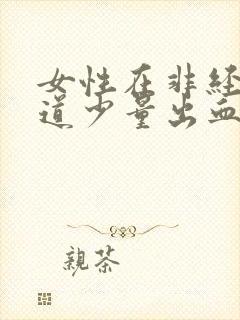 女性在非经
道少量出血
親茶